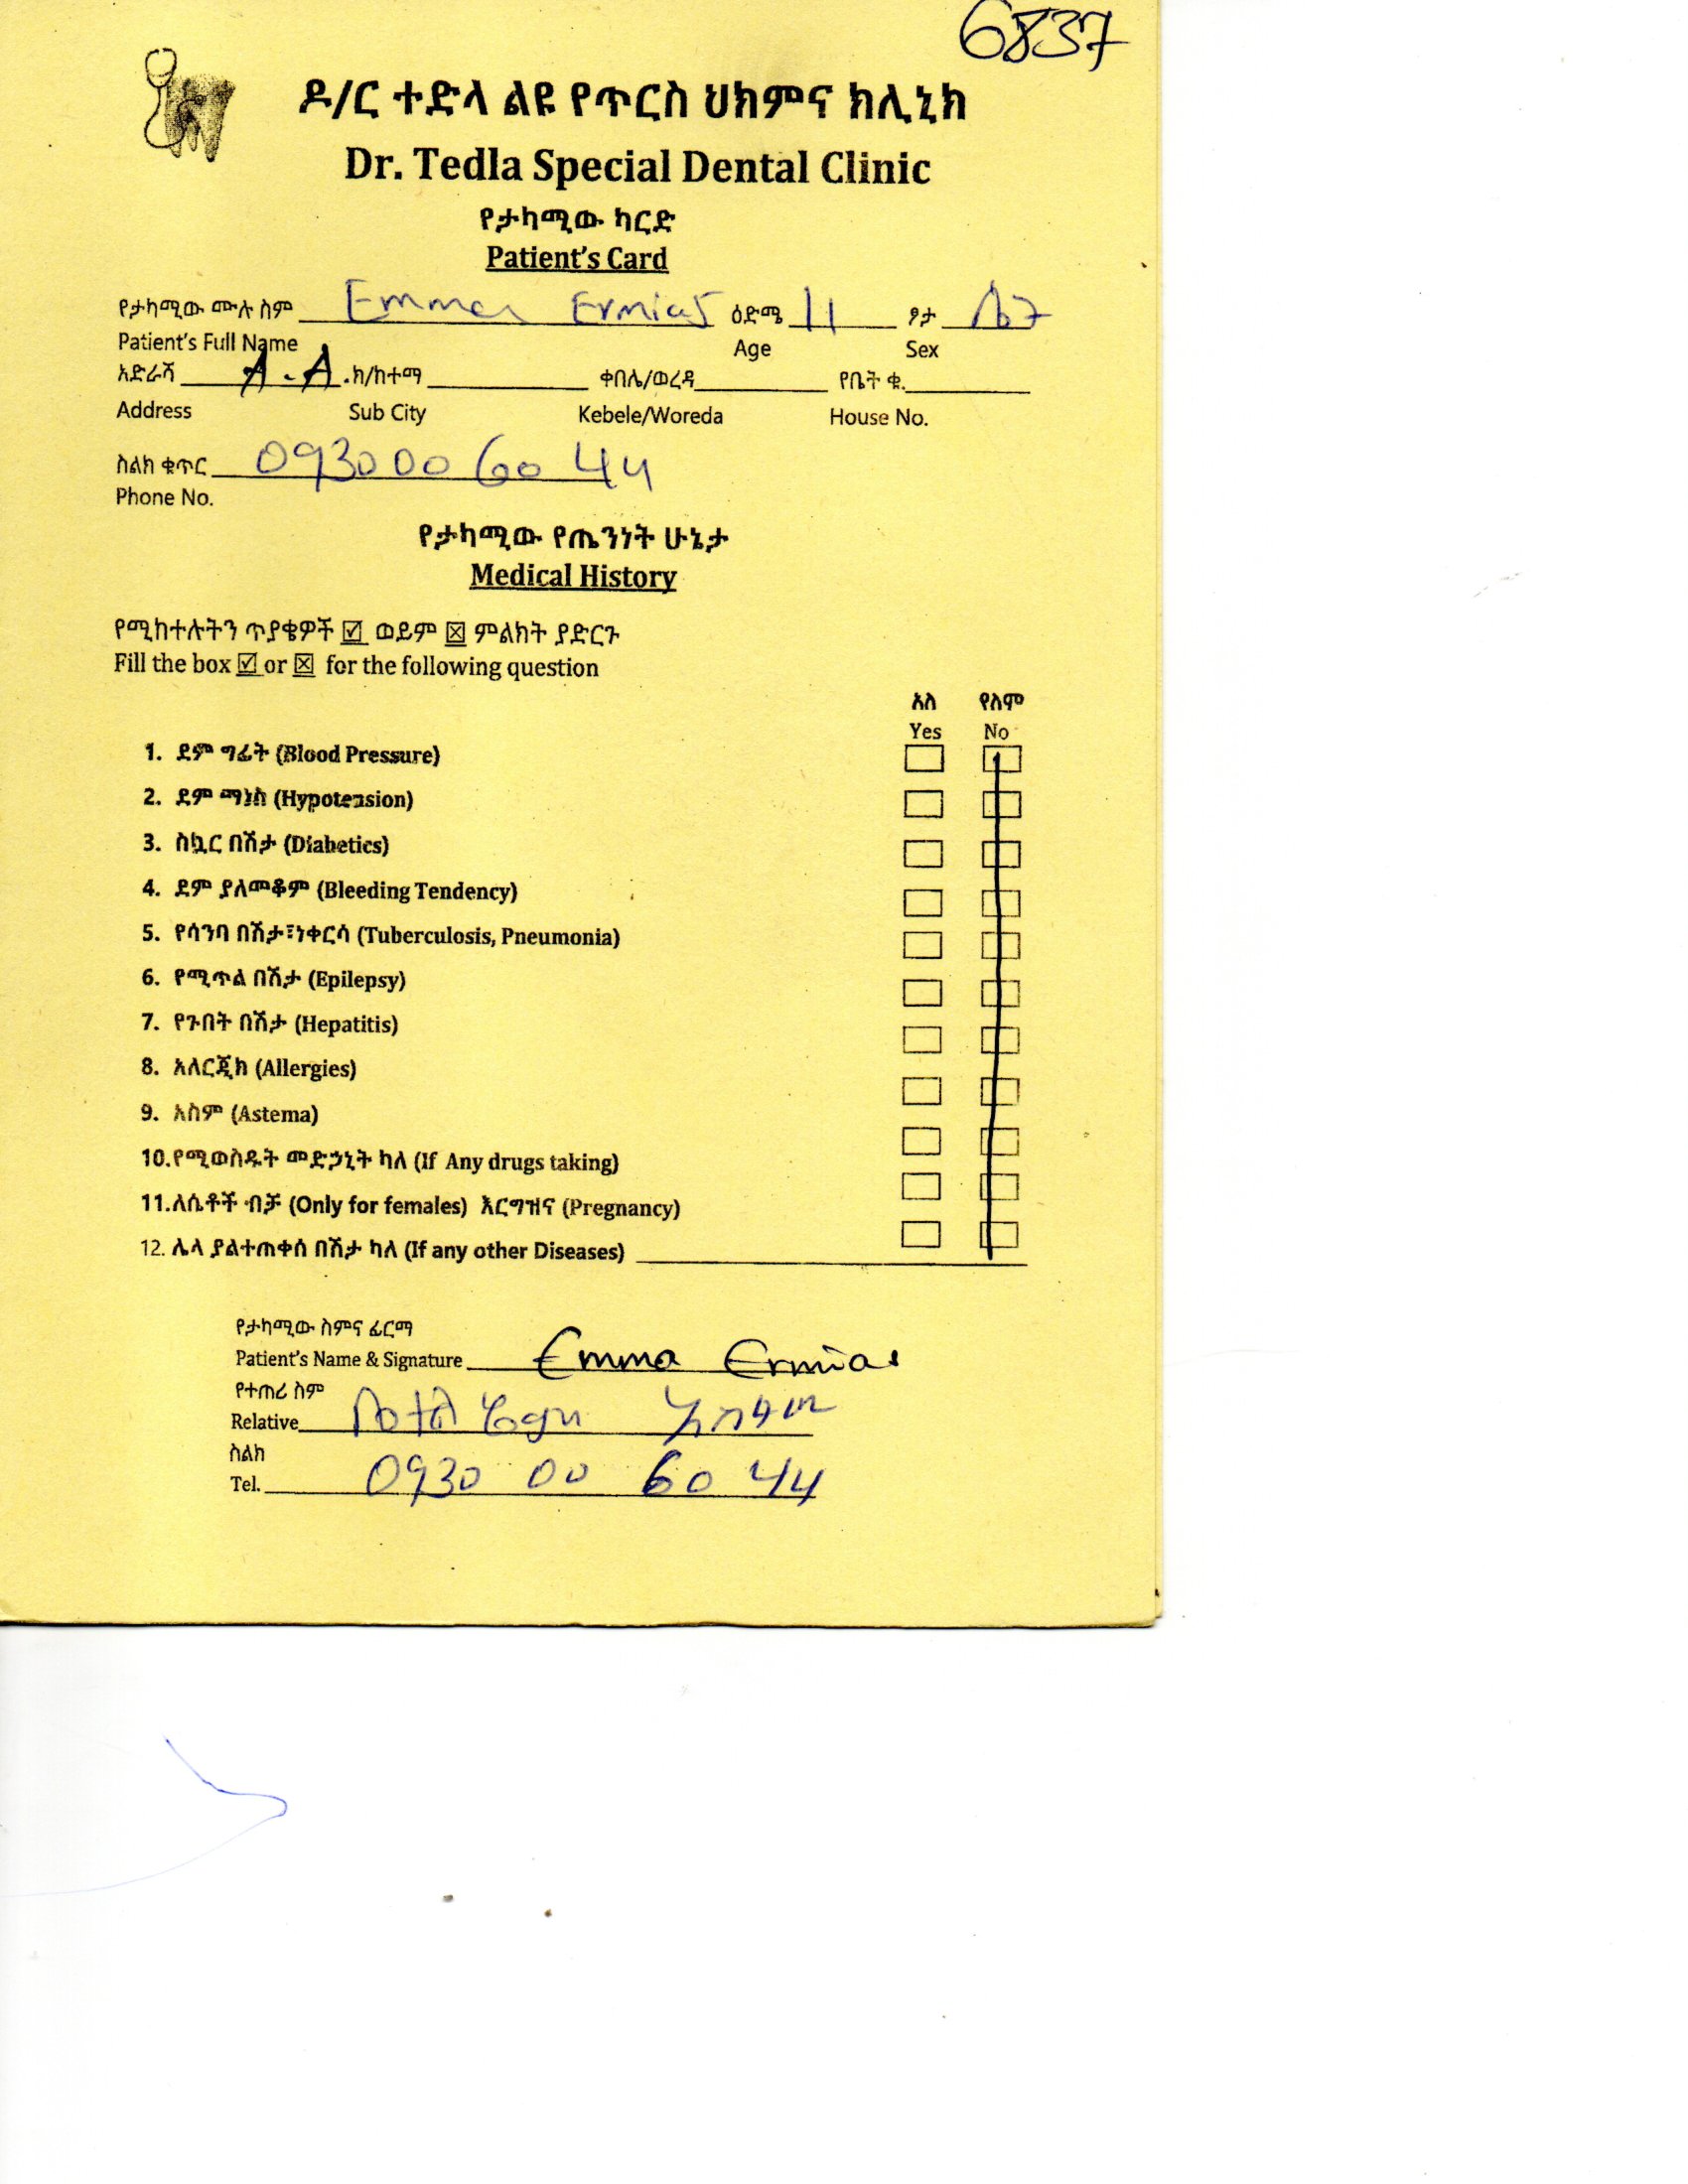 6837
ዶ/ር ተድላ ልዩ የጥርስ ህክምና ክሊኒክ
Dr. Tedla Special Dental Clinic
የታካሚው ካርድ
Patient's Card
የታካሚው ሙሉ ስም Emma Ermias ዕድሜ 11 ፆታ
Patient's Full Name Age Sex
አድራሻ A.A ክ/ከተማ ቀበሌ/ወረዳ የቤት ቁ.
Address Sub City Kebele/Woreda House No.
ስልክ ቁጥር 0930 00 60 44
Phone No.
የታካሚው የጤንነት ሁኔታ
Medical History
የሚከተሉትን ጥያቄዎች ☑ ወይም ☒ ምልክት ያድርጉ
Fill the box ☑ or ☒ for the following question
አለ የለም
Yes No
1. ደም ግፊት (Blood Pressure)
2. ደም ማነስ (Hypotension)
3. ስኳር በሽታ (Diabetics)
4. ደም ያለመቆም (Bleeding Tendency)
5. የሳንባ በሽታ፣ነቀርሳ (Tuberculosis, Pneumonia)
6. የሚጥል በሽታ (Epilepsy)
7. የጉበት በሽታ (Hepatitis)
8. አለርጂክ (Allergies)
9. አስም (Astema)
10.የሚወስዱት መድኃኒት ካለ (If Any drugs taking)
11.ለሴቶች ብቻ (Only for females) እርግዝና (Pregnancy)
12. ሌላ ያልተጠቀሰ በሽታ ካለ (If any other Diseases)
የታካሚው ስምና ፊርማ
Patient's Name & Signature Emma Ermias
የተጠሪ ስም
Relative
ስልክ
Tel. 0930 00 60 44